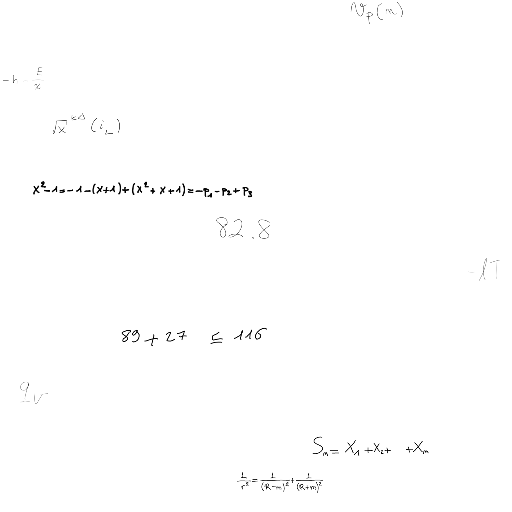 v_p(n)
√x^{x^Δ}(i_L)
x²-1=-1-(x+1)+(x²+x+1)=-p₁-p₂+p₃
82.8
-1T
89+27 ≤ 116
q_v
S_n=X₁+X₂+ +X_n
1/r²=1/(R-m)²+1/(R+m)²